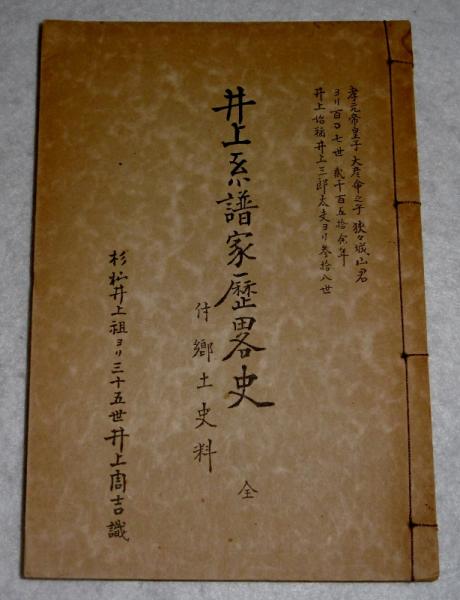 孝元帝皇子大彦命之子狭々城山君
ヨリ百〇七世 貳千百五拾余年
井上始祖井上三郎太夫ヨリ参拾八世
井上系譜家歴畧史
付郷土史料
全
杉山井上祖ヨリ三十五世井上周吉識